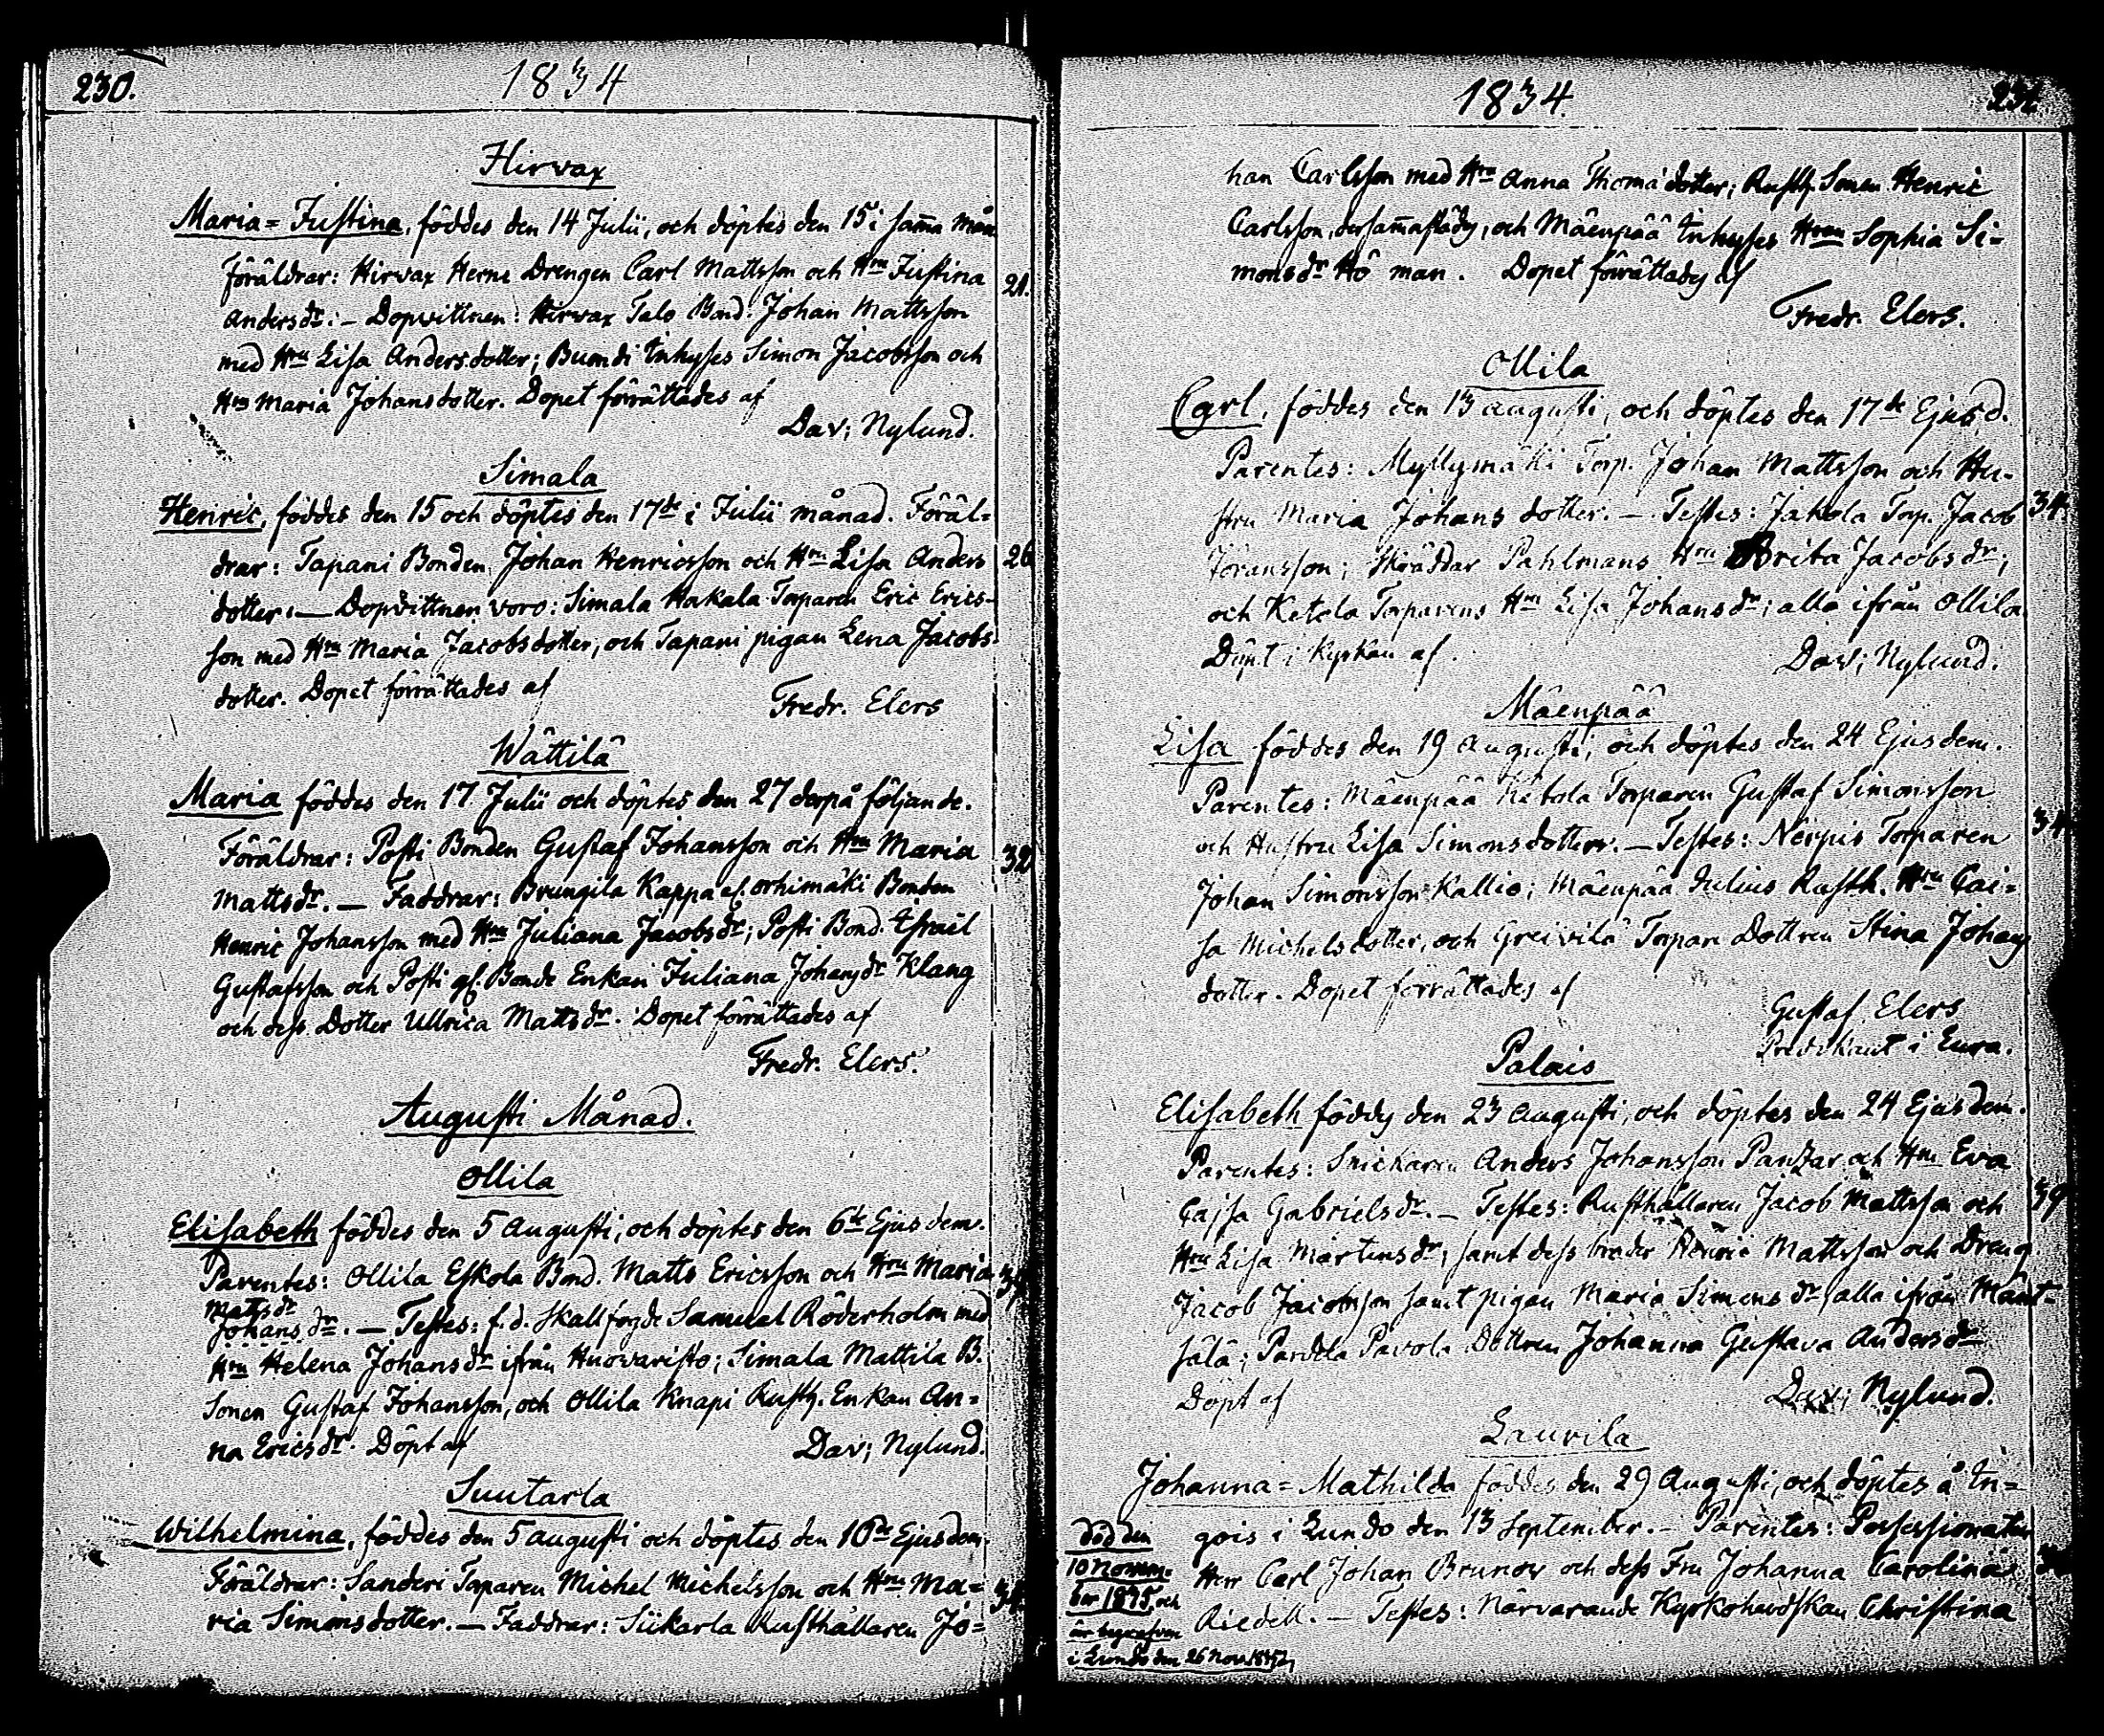 230.
1834
Hirvax
Maria=Justina, föddes den 14 Julii, och döptes den 15 i sam̄a mån
Föräldrar: Hirvax Herne Drengen Carl Mattsson och Hru Justina
21.
Andersdr. – Dopvittnen: Hirvax Talo Bond. Johan Mattsson
med Hru Lisa Andersdotter; Buomdi Inhyses Simon Jacobsson och
Hru Maria Johansdotter. Dopet förrättades af
Dav; Nylund.
Simala
Henric, föddes den 15 och döptes den 17de i Julii månad. Föräl=
drar: Tapani Bonden Johan Henricsson och Hru Lisa Anders
26
dotter. — Dopvittnen voro: Simala Hakala Torparen Eric Erics-
son med Hru Maria Jacobsdotter, och Tapani pigan Lena Jacobs
dotter. Dopet förrättades af
Fredr. Elers
Wättilä
Maria föddes den 17 Julii och döptes den 27 derpå följande.
Föräldrar: Posti Bonden Gustaf Johansson och Hru Maria
32
Mattsdr. — Faddrar: Brungila Kappa el. orhimäki Bonden
Henric Johansson med Hru Juliana Jacobsdr; Posti Bond. Israel
Gustafsson och Posti gl. Bonde Enkan Juliana Johansdr Klang
och dess Dotter Ullrica Mattsdr. Dopet förrättades af
Fredr. Elers.
Augusti Månad.
Ollila
Elisabeth föddes den 5 Augusti, och döptes den 6te Ejusdem.
Parentes: Ollila Eskola Bond. Matts Ericsson och Hru Maria
Mattsdr
Johansdr. — Testes: f.d. Skallfogde Samuel Röderholm med
Hru Helena Johansdr ifrån Huovaristo; Simala Mattila B.
Sonen Gustaf Johansson, och Ollila Knapi Rusth. Enkan An=
na Ericsdr. Döpt af
Dav; Nylund.
Suutarla
Wilhelmina, föddes den 5 Augusti och döptes den 10de Ejusdem.
Föräldrar: Sanderi Torparen Michel Michelsson och Hru Ma=
ria Simonsdotter. — Faddrar: Siikarla Rusthållaren Jo=
1834.
231
han Carlsson med Hru Anna Thomædotter; Rusth. Sonen Henric
Carlsson, dersam̄astädes, och Mäenpää Inhyses Hrun Sophia Si=
monsdr Hö man. Dopet förrättades af
Fredr. Elers.
Ollila
Carl, föddes den 13 Augusti, och döptes den 17de Ejusd.
Parentes: Myllymäki Torp. Johan Mattsson och Hu-
stru Maria Johansdotter. — Testes: Jakola Torp. Jacob
34
Jöransson; Skräddar Pahlmans Hru Brita Jacobsdr;
och Ketola Torparens Hru Lisa Johansdr; alla ifrån Ollila
Döpt i Kyrkan af
Dav; Nylund.
Mäenpää
Lisa föddes den 19 Augusti, och döptes den 24 Ejusdem.
Parentes: Mäenpää Ketola Torparen Gustaf Simonsson
och Hustru Lisa Simonsdotter. — Testes: Neipis Torparen
Johan Simonsson Kallio; Mäenpää Julius Rusth. Hru Cai=
sa Michelsdotter, och Greivilä Torpare Dottren Stina Johans
dotter. Dopet förrättades af
Gustaf Elers
Predikant i Eura.
Palais
Elisabeth föddes den 23 Augusti, och döptes den 24 Ejusdem.
Parentes: Snickaren Anders Johansson Pantzar och Hru Eva
Cajsa Gabrielsdr. — Testes: Rusthållaren Jacob Mattsson och
39
Hru Lisa Mårtensdr; samt dess broder Henric Mattsson och Dreng
Jacob Jacobsson samt pigan Maria Simonsdr alla ifrån Mänt=
sälä; Pardela Pavola Dottren Johanna Gustava Andersdr
Döpt af
Dav; Nylund.
Laurila
Johanna=Mathilda föddes den 29 Augusti, och döptes å In=
gois i Lundo den 13 September. – Parentes: Possessionaten
Herr Carl Johan Brunow och dess Fru Johanna Carolina
Riedell. — Testes: Närvarande Kyrkoherdskan Christina
död den
10 Novem=
ber 1835 och
är begrafven
i Lundo den 26 Nov.